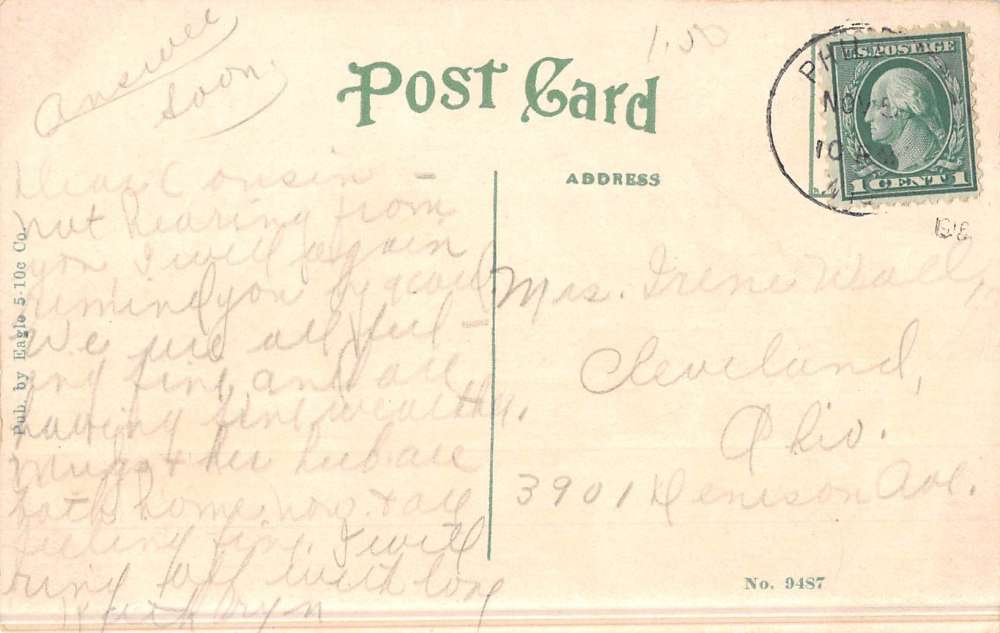 answer
soon.
1.00
Post Card
ADDRESS
U.S. POSTAGE
1 CENT 1
NOV 5
10 A
1918
Dear Cousin -
not hearing from
you I will again
remind you by card
We are all feel-
ing fine and are
having fine weather.
& her hub are
both home now & are
feeling fine. I will
ring off with love
Kathryn
Mrs. Irene
Cleveland,
Ohio.
3901 Denison Ave.
Pub. by Eagle 5-10c Co.
No. 9487